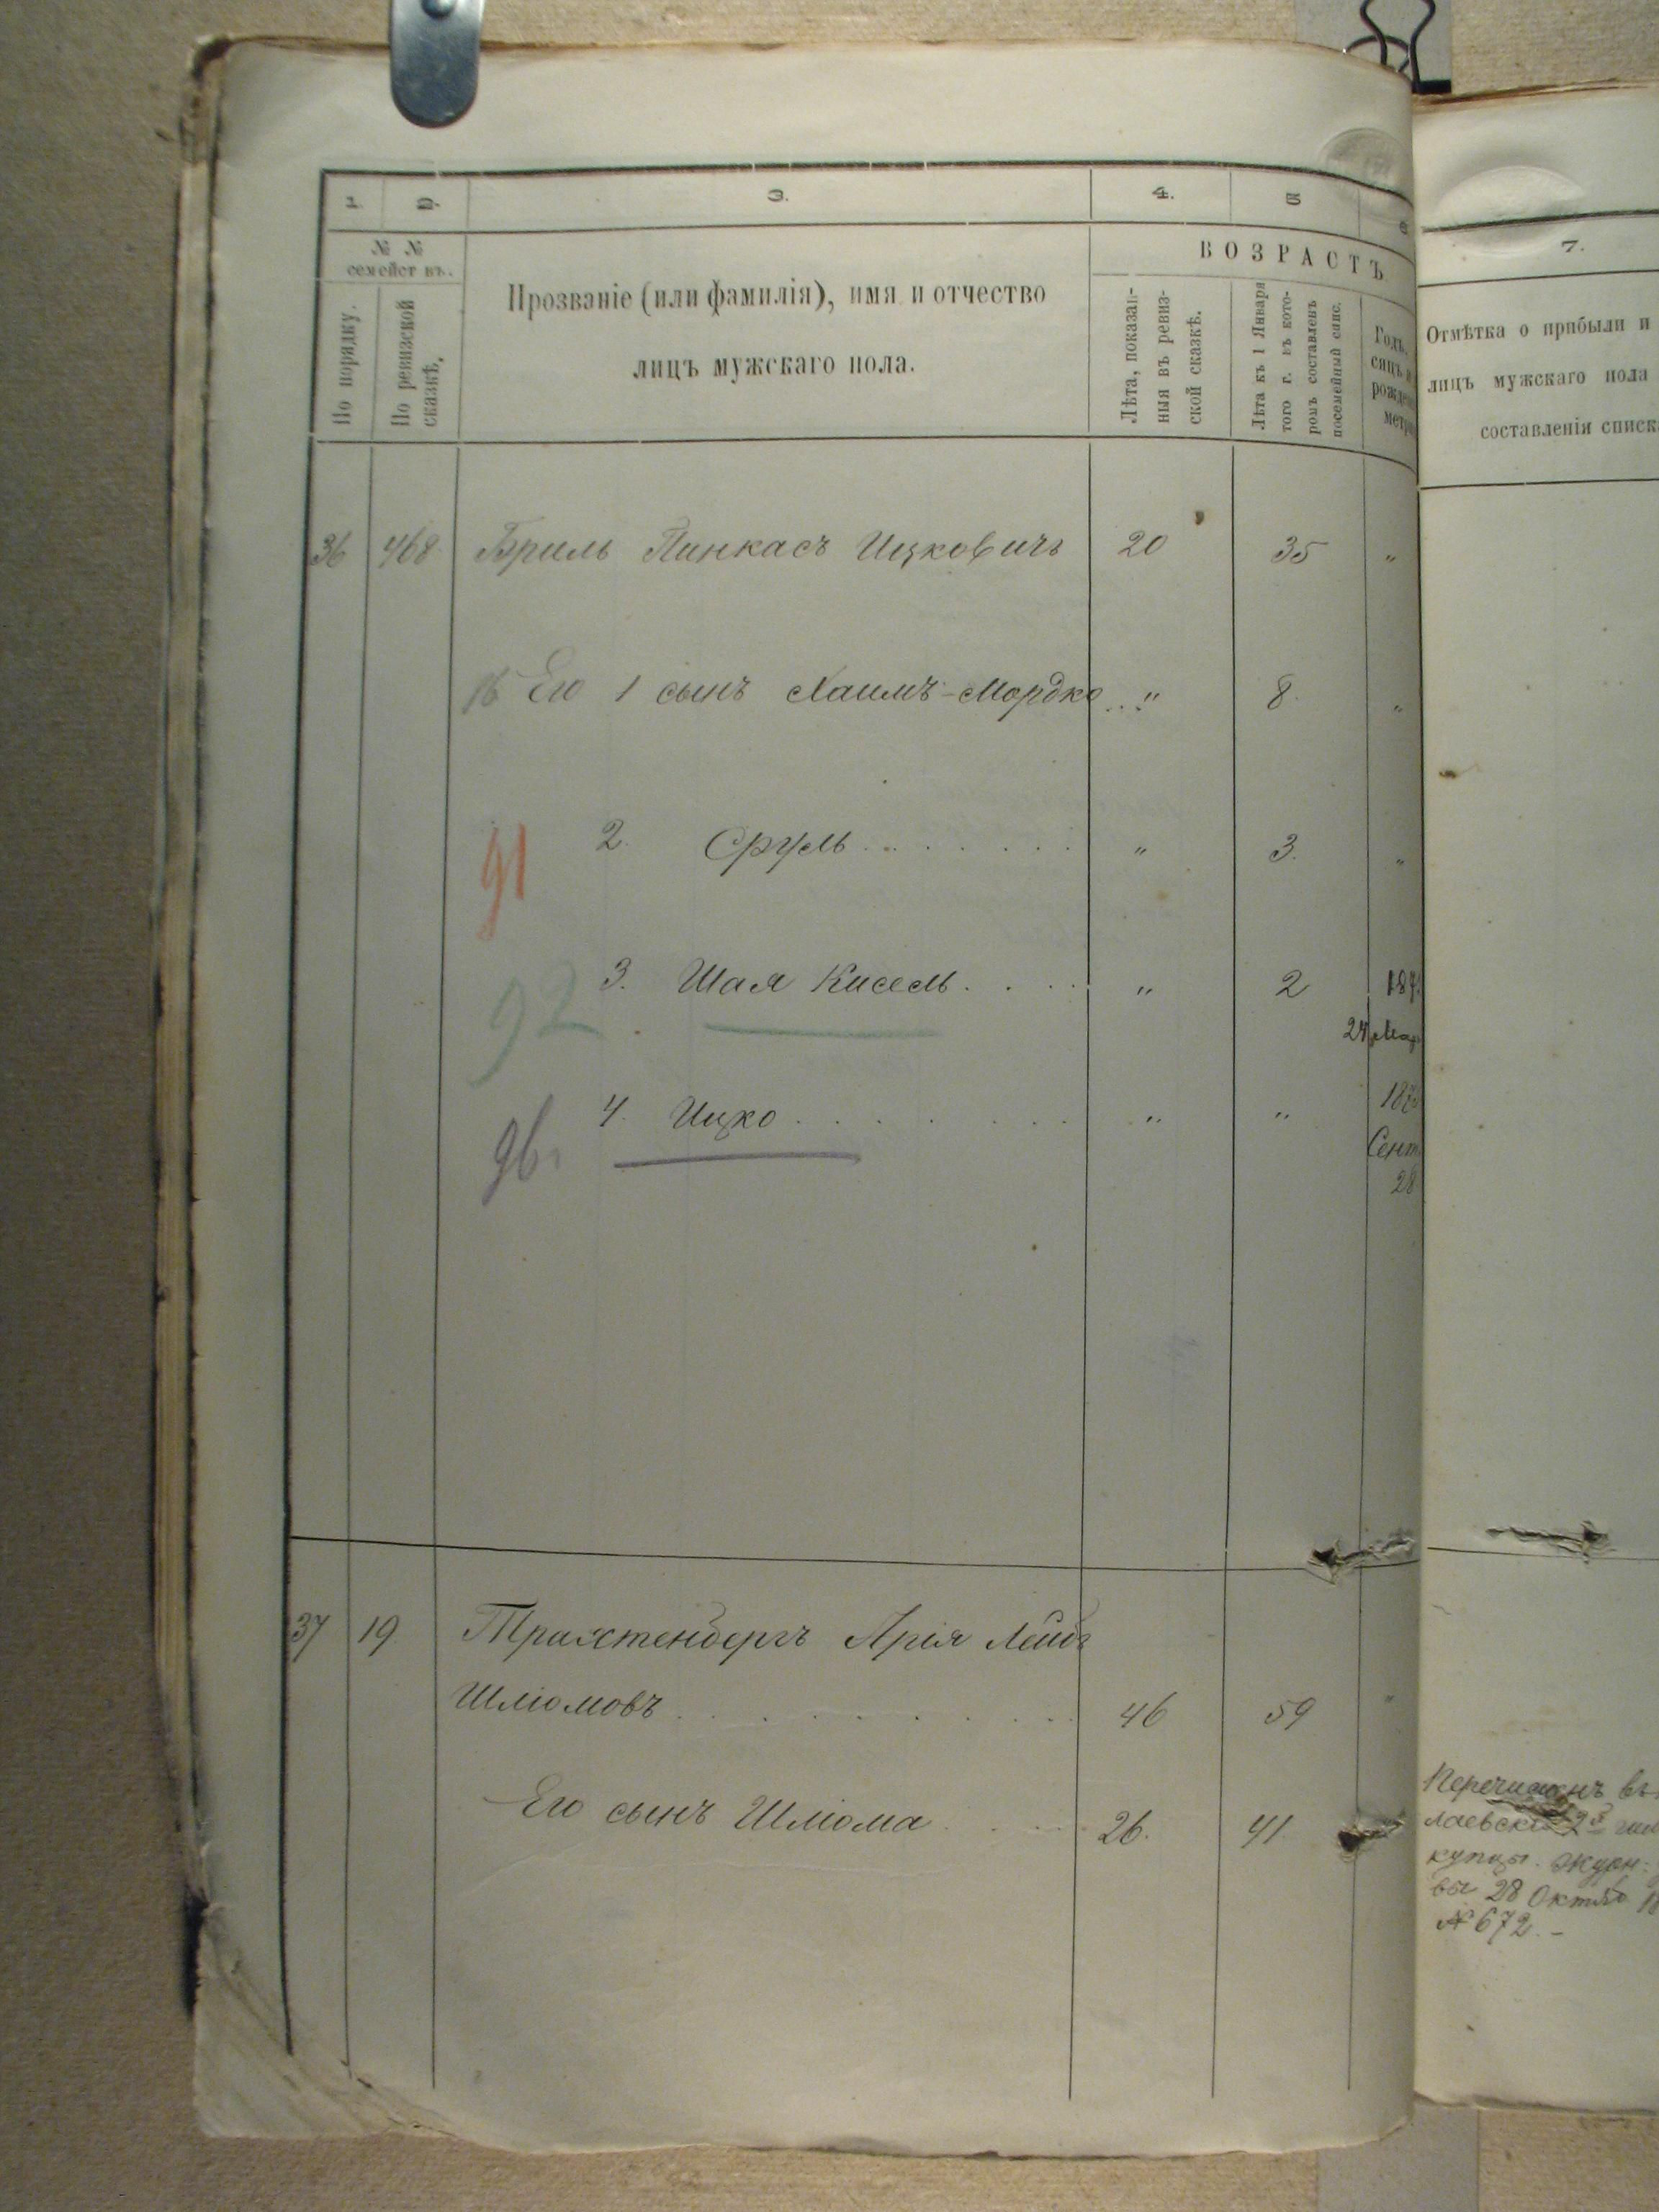 1. 2. 3. 4. 5 6
№ № семействъ.
По порядку.
По ревизской сказкѣ.
Прозваніе (или фамилія), имя и отчество
лицъ мужскаго пола.
ВОЗРАСТЪ
Лѣта, показан-
ныя въ ревиз-
ской сказкѣ.
Лѣта къ 1 Января
того г. въ кото-
ромъ составленъ
посемейный спис.
Годъ,
сяцъ и
рожден
метри
7.
Отмѣтка о прибыли и
лицъ мужскаго пола
составленія списк
36 468 Бриль Пинкасъ Ицковичъ 20 35 "
16 Его 1 сынъ Хаимъ-Мордко .. " 8. "
91 2. Сруль . . . . . . . " 3. "
92 3. Шая Кисель . . . . " 2 187
24 Мар
96 4. Ицко . . . . . . . " " 187
Сент.
28
37 19 Трахтенбергъ Арія Лейба
Шліомовъ . . . . . . . . 46 59 "
Его сынъ Шліома . . . . 26. 41
Перечисленъ въ
лаевскія 2й гил
купцы. Журн:
28 Октяб 18
№ 672. -